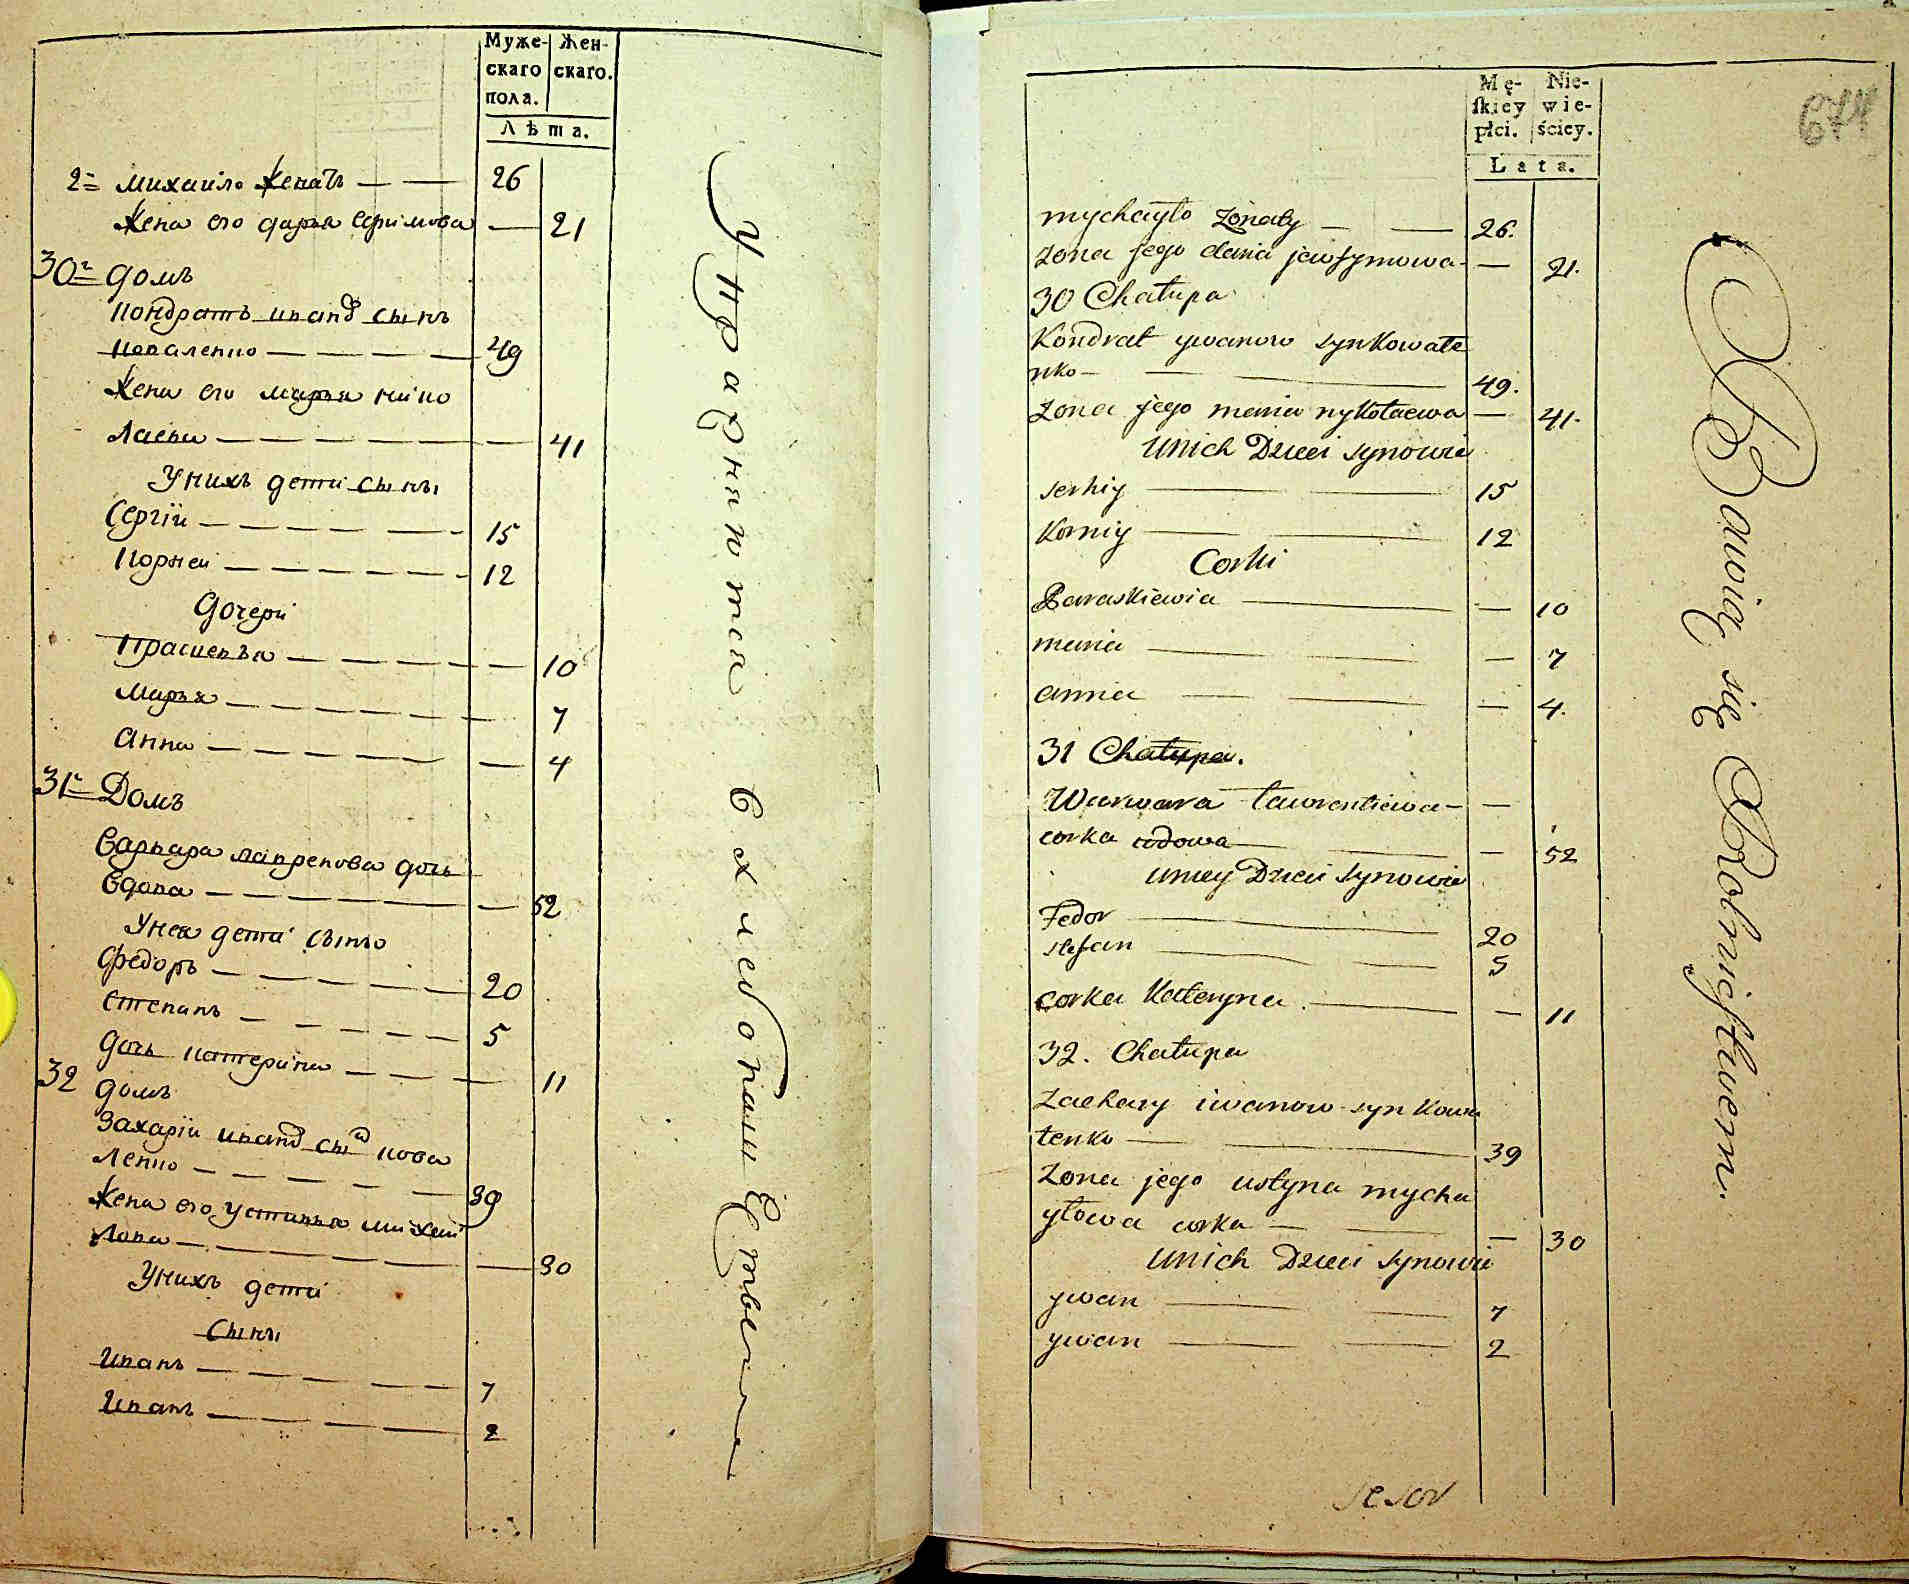 Муже- Жен-
скаго скаго.
пола.
Лѣта.
2 михаило женатъ 26
жена его дарья ефимова 21
30 домъ
Кондратъ иванов сынъ
коваленко 49
жена его марья нико
лаева 41
У нихъ дети сыны
Сергiи 15
Корнеи 12
дочери
Прасковья 10
марья 7
анна 4
31 Домъ
варвара лавренова дочь
вдова 52
У нея дети сыны
федоръ 20
степанъ 5
дочь катерина 11
32 домъ
Захарiи иванов сынъ кова
ленко 39
жена его устинья михаи
лова 30
У нихъ дети
Сыны
Иванъ 7
Иванъ 2
Упражняются в хлебопашестве
Mę- Nie-
skiey wie-
płci. ściey.
Lata.
674
mychayło żonaty 26.
żona jego daria jewfymowa 21.
30 Chałupa
Kondrat ywanow syn Kowale
nko 49.
żona jego maria nykołaewa 41.
U nich Dzieci synowie
serhiy 15
Korniy 12
Corki
Paraskiewia 10
maria 7
anna 4.
31 Chałupa.
Warwara ławrentiewa
corka wdowa 52
u niey Dzieci synowie
Fedor 20
stefan 5
corka Kateryna 11
32. Chałupa
Zachary iwanow syn Kowa
lenko 39
żona jego ustyna mycha
yłowa corka 30
U nich Dzieci synowie
ywan 7
ywan 2
Bawią się Rolnictwem.